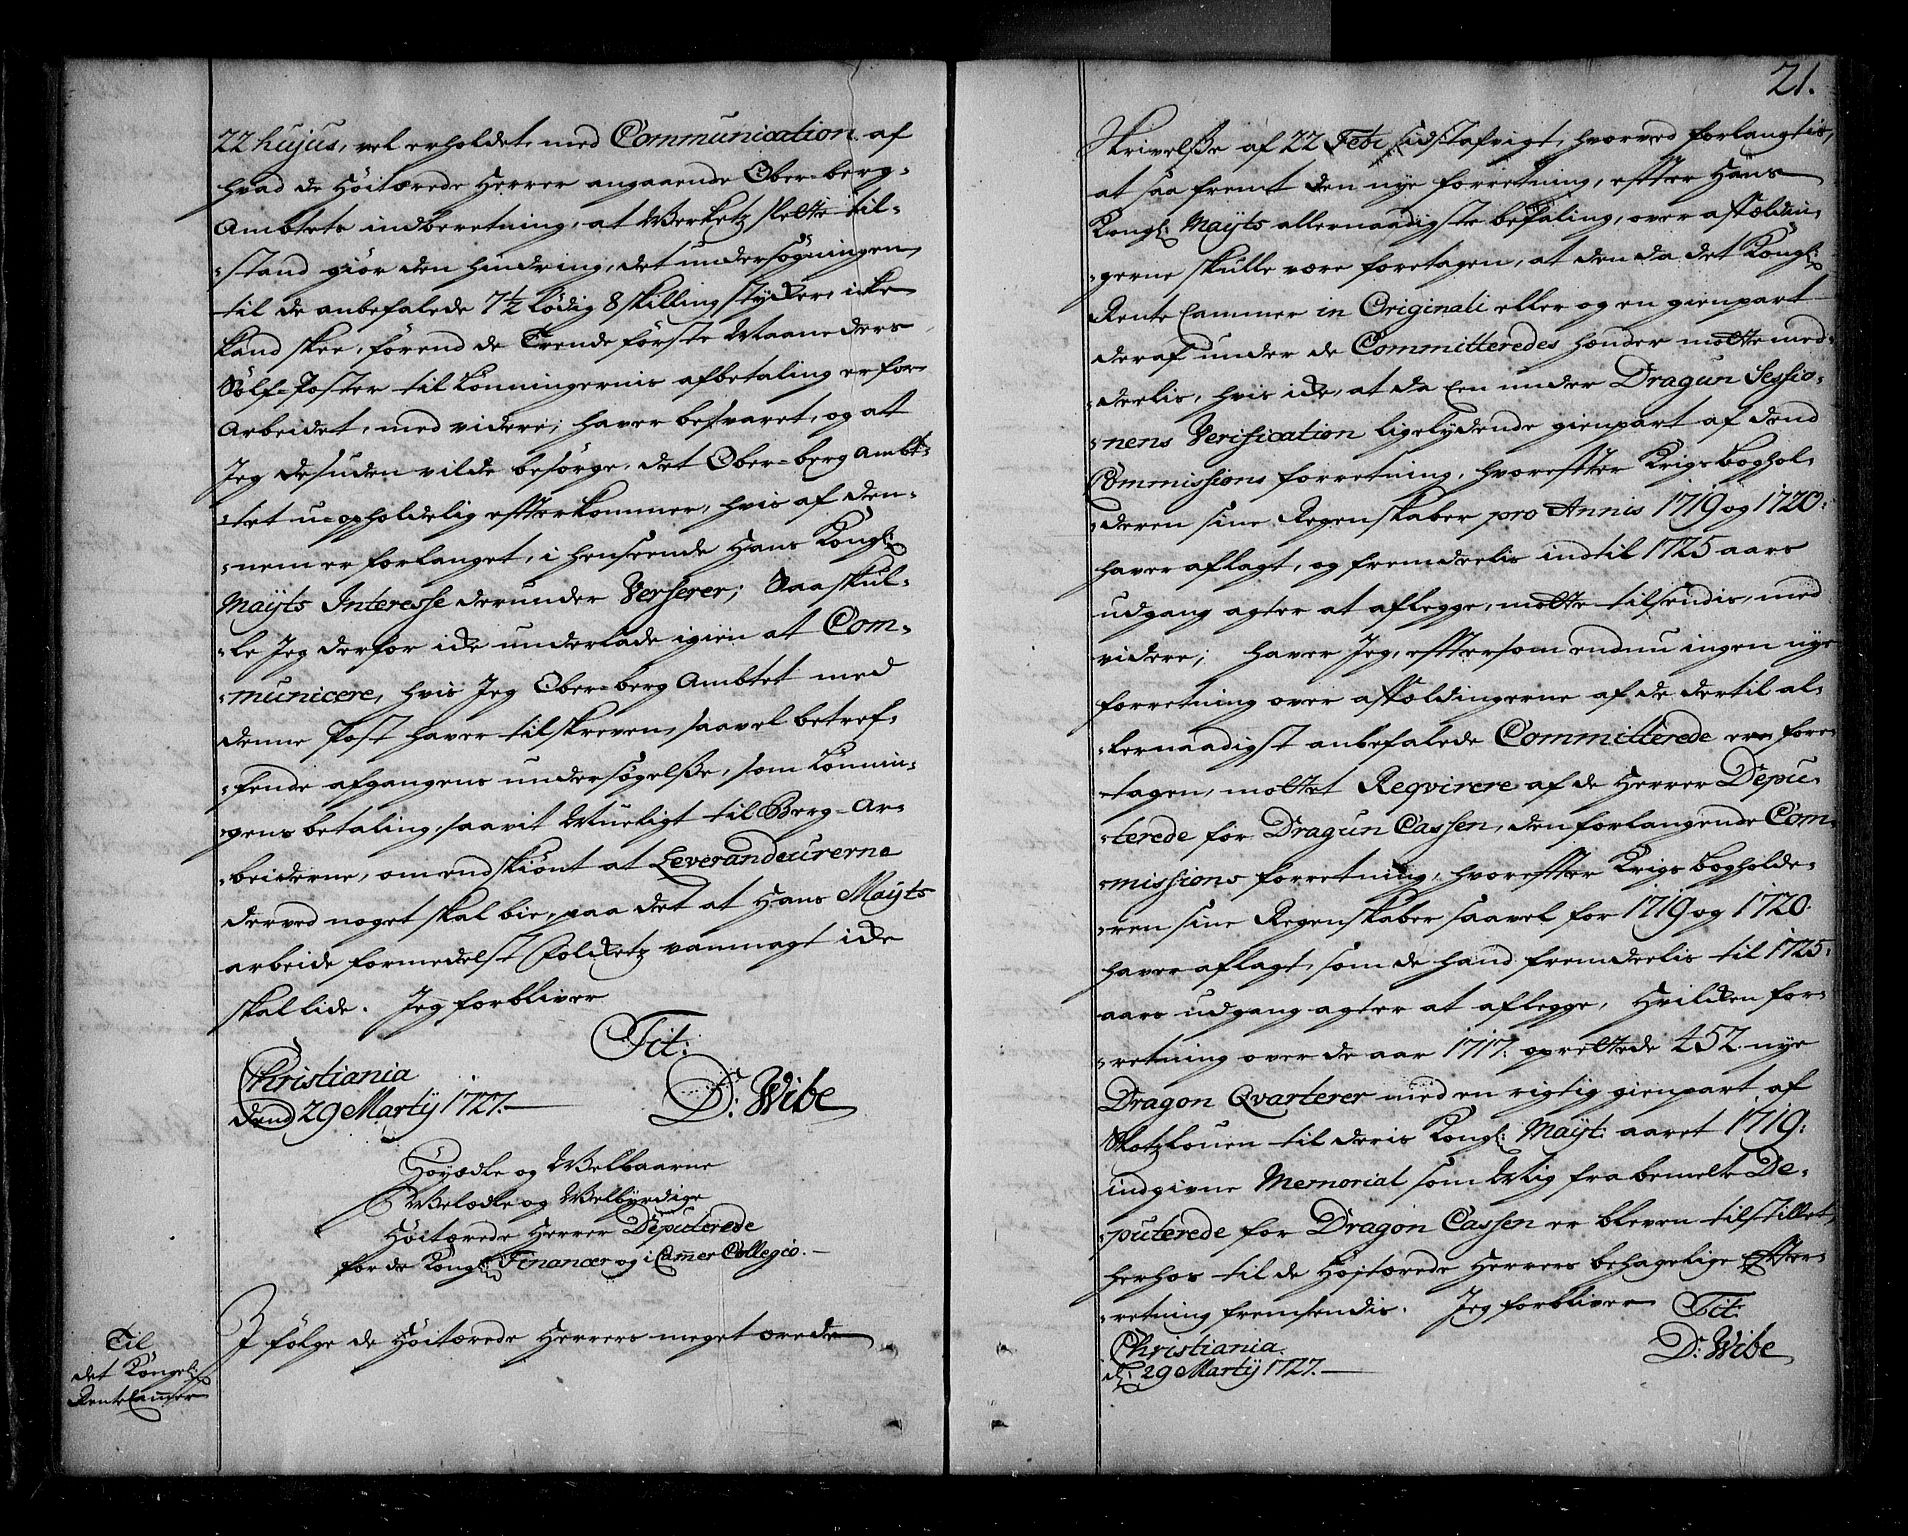 22 hujus, vel erholdet, med Communication af
hvad de Höitærede Herrer angaaende Ober-berg-
Ambtets indberetning, at Werketz slette til-
-stand giör den hindring, det undersögningen,
til de anbefalede 7½ Lödig 8 skilling stycker, icke
kand skee, förend de Trende förste Maaneders
Sölf-Poster til Lönningernis afbetaling er for-
Arbeidet, med videre, haver besvaret, og at
Jeg desuden vilde besörge, det Ober-berg Ambt-
-tet u-opholdelig efterkommer, hvis af den-
-nem er forlanget, i henseende Hans Kongl:
Mayts Interesse derunder Verserer; Saa skul-
-le Jeg derfor icke underlade igien at Com-
-municere, hvis Jeg Ober-berg Ambtet med
denne Post haver tilskreven, saavel betref-
-fende afgangens undersögelse, som Lönnin-
-gens betaling, saavit Mueligt til Berg-Ar-
-beiderne, omendskiönt at Leverandeurerne
derved noget skal bie, paa det at Hans Mayts
arbeide formedelst Folcketz vanmagt icke
skal lide. Jeg forbliver
Tit:
Christiania
dend 29 Martij 1727.
D: Wibe
Höyædle og Welbaarne
Welædle og Welbyrdige
Höitærede Herrer Deputerede
for de Kongl: Financer og i Camer Collegio.
Til
det Kongel:
Rente Cammer
I fölge de Höitærede Herrers meget ærede
21.
Skrivelse af 22 Febr sidstafvigt, hvorved forlangtis,
at saafremt den nye forretning, efter Hans
Kongl: Mayts allernaadigste befaling, over afkældin-
-gerne skulle være foretagen, at den da det Kongl:
Rente Cammer in Originali eller og en gienpart
deraf under de Committeredes Hænder motte med-
-deelis, hvis icke, at da Een under Dragun Sessio-
-nens Verification ligelydende gienpart af dend
Commissions forretning, hvorefter Krigs Boghol-
-deren sine Regenskaber pro Annis 1719 og 1720:
haver aflagt, og fremdeelis indtil 1725 aars
udgang agter at aflegge, motte tilsendis, med
videre; haver Jeg, eftersom endnu ingen nye
forretning over afkældingerne af de dertil al-
-lernaadigst anbefalede Committerede er fore-
-tagen, mottet Reqvirere af de Herrer Depu-
-terede for Dragun Cassen, den forlangende Com-
-missions forretning, hvorefter Krigs Bogholde-
-ren sine Regenskaber saavel for 1719 og 1720
haver aflagt, som de hand fremdeelis til 1725:
aars udgang agter at aflegge, Hvilcken for-
-retning over de aar 1717: oprettede 452 nye
Dragon Qvarterer med en rigtig gienpart af
til deris Kongl: Mayt: aaret 1719:
indgivne Memorial som Mig fra bemelte De-
-puterede for Dragon Cassen er bleven tilstillet,
herhos til de Höitærede Herrers behagelige Efter-
-retning fremsendis. Jeg forbliver
Tit:
Christiania
d: 29 Martij 1727.
D: Wibe